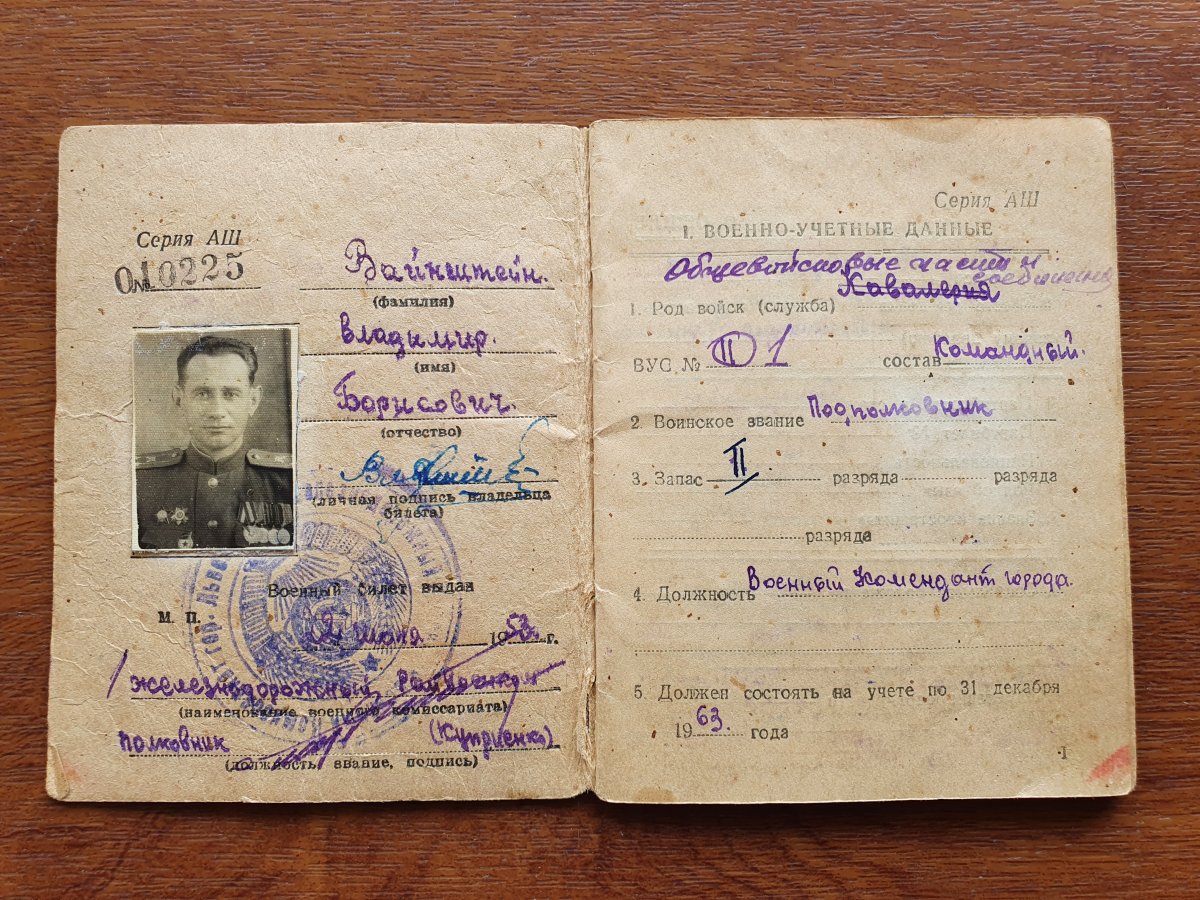 Серия АШ
№ 010225
Вайнштейн.
(фамилия)
Владимир.
(имя)
Борисович.
(отчество)
(личная подпись владельца
билета)
Военный билет выдан
М. П.
июня 1953 г.
железнодорожный Райвоенком
(наименование военного комиссариата)
полковник (Куприенко)
(должность, звание, подпись)
Серия АШ
I. ВОЕННО-УЧЕТНЫЕ ДАННЫЕ
Общевойсковые части и соединения
Кавалерия
1. Род войск (служба)
ВУС № II 1 состав Командный.
2. Воинское звание Подполковник
3. Запас II разряда разряда
разряда
4. Должность Военный Комендант города.
5. Должен состоять на учете по 31 декабря
1963. года
1